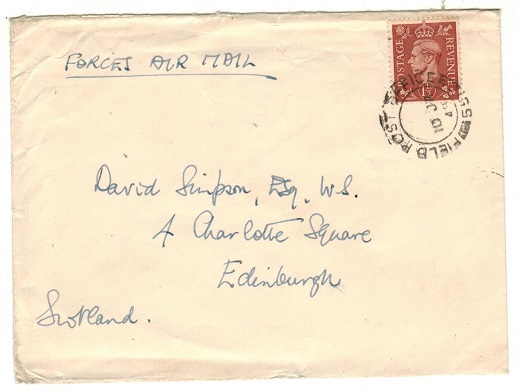 FORCES AIR MAIL
POSTAGE REVENUE
1½D
FIELD POST OFFICE
10 JA
David Simpson, Esq, W.S.
4 Charlotte Square
Edinburgh
Scotland.